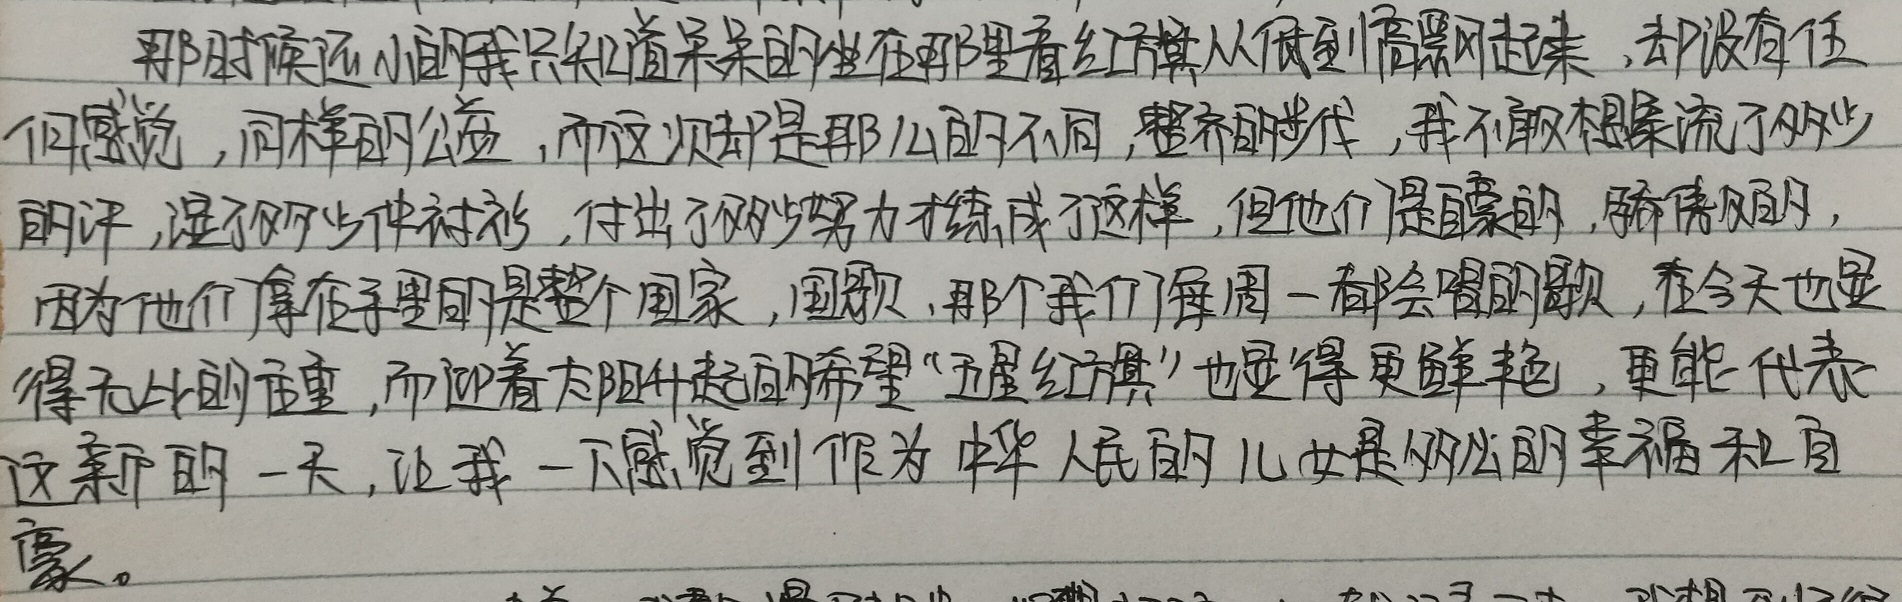 那时候还小的我只知道呆呆的坐在那里看红旗从低到高飘起来,却没有任
何感觉,同样的公益,而这次却是那么的不同,整齐的步伐,我不敢想象流了多少
的汗,湿了多少件衬衫,付出了多少努力才练成了这样,但他们是自豪的,骄傲的,
因为他们拿在手里的是整个国家,国歌,那个我们每周一都会唱的歌,在今天也显
得无比的庄重,而迎着太阳升起的希望“五星红旗”也显得更鲜艳,更能代表
这新的一天,让我一下感觉到作为中华人民的儿女是多么的幸福和自
豪。